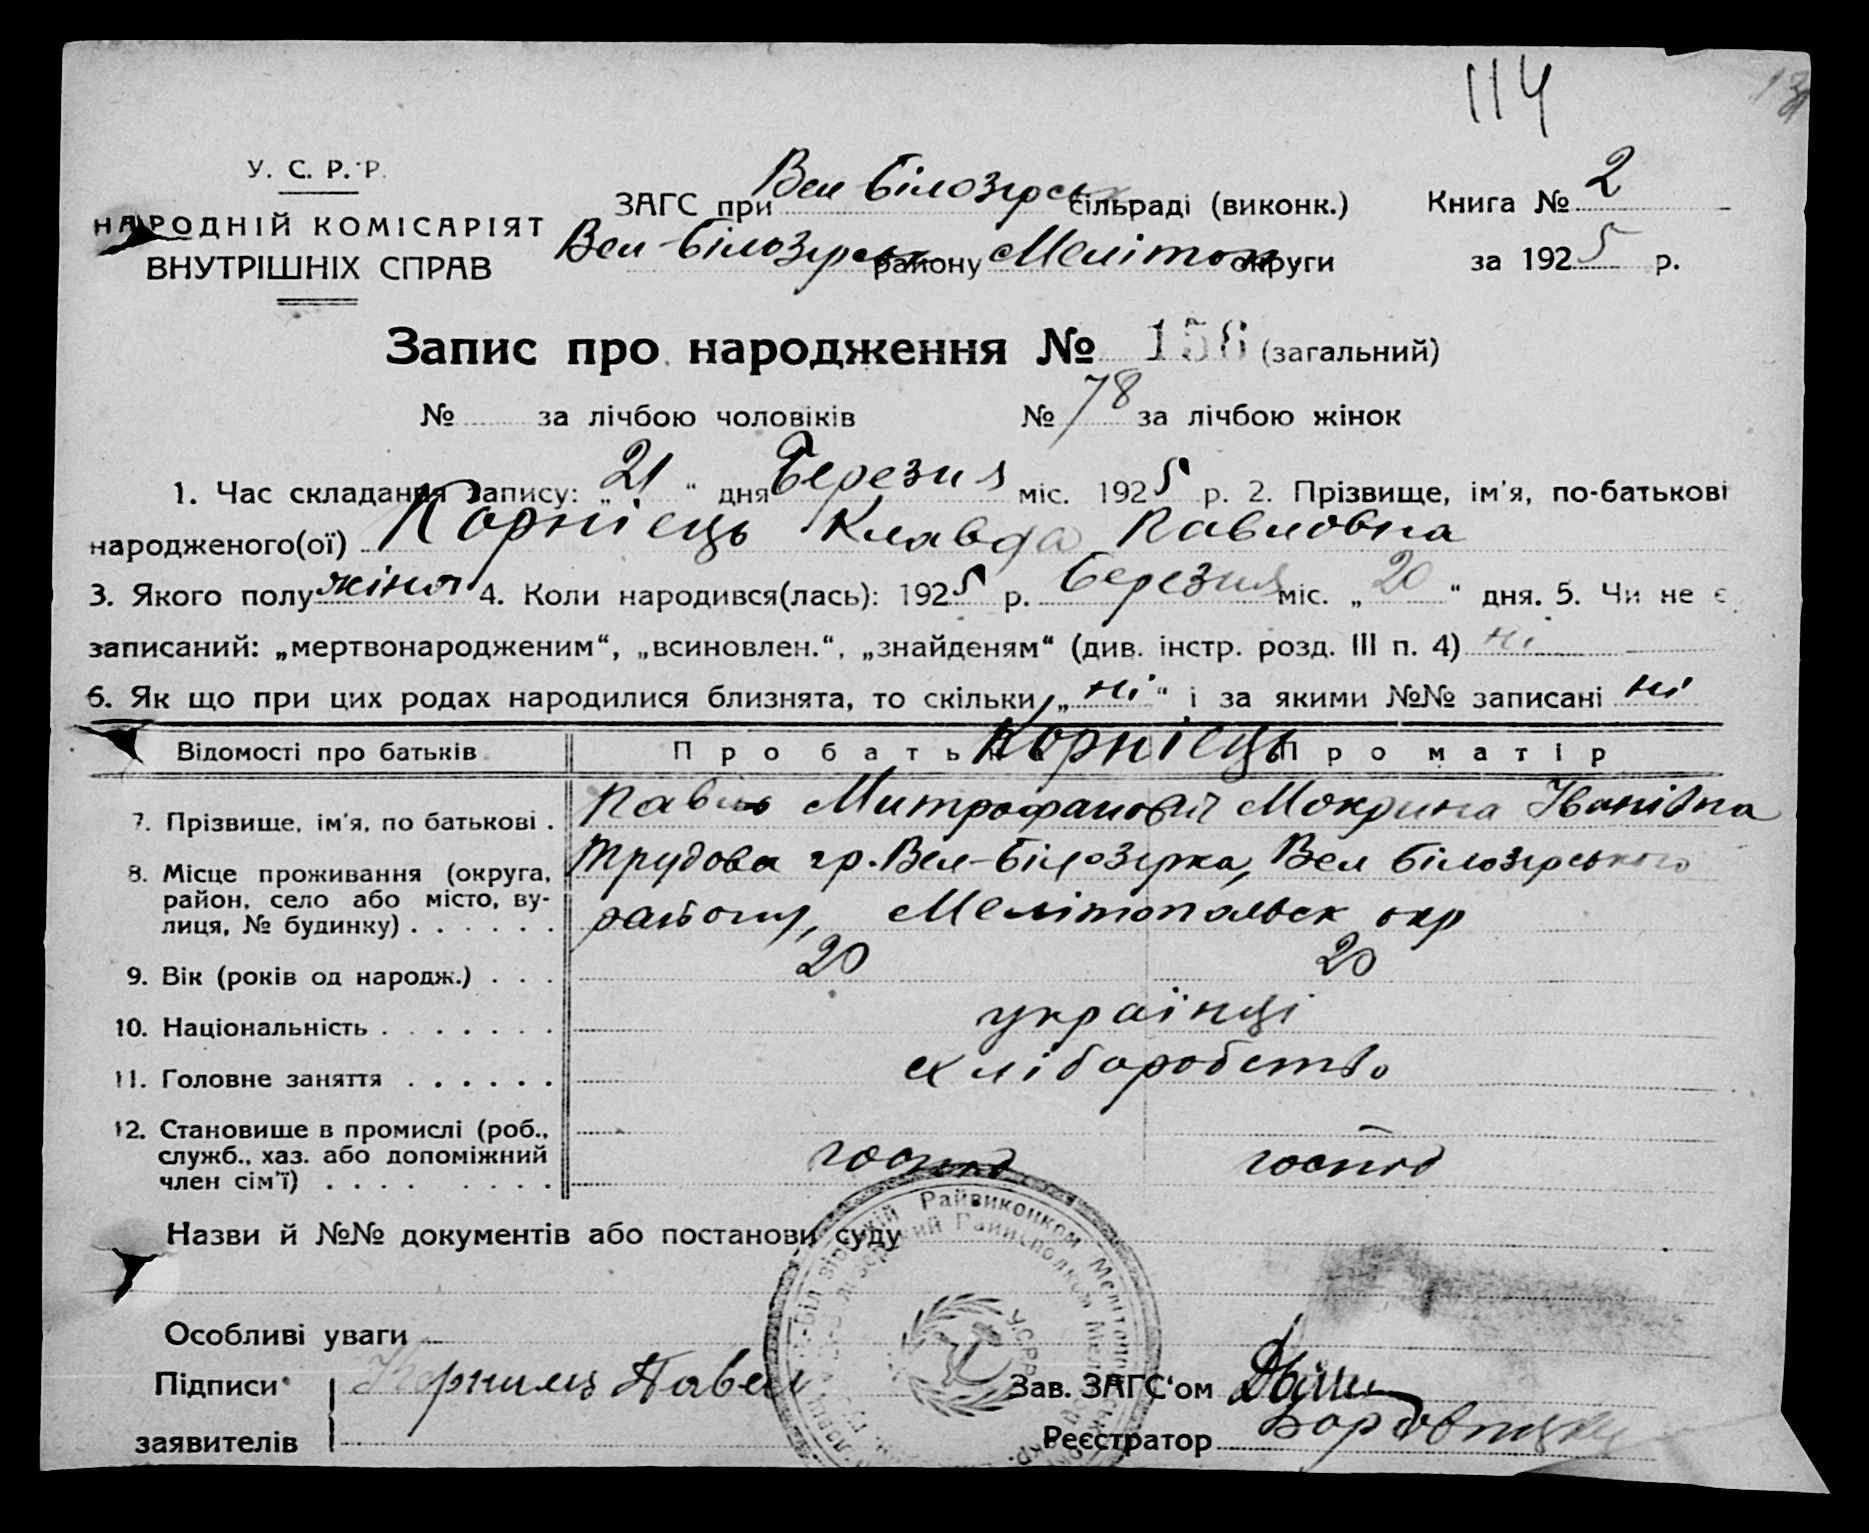 114
У. С. Р. Р.
НАРОДНІЙ КОМІСАРІЯТ
ВНУТРІШНІХ СПРАВ
ЗАГС при Вел Білозірськ сільраді (виконк.)
Вел-Білозірськ району Мелітоп округи
Книга № 2
за 1925 р.
Запис про народження № 156 (загальний)
№ за лічбою чоловіків № 78 за лічбою жінок
1. Час складання запису: „21“ дня Березня міс. 1925 р. 2. Прізвище, ім'я, по-батькові
народженого(ої) Корнієць Клавда Павловна
3. Якого полу жіноч 4. Коли народився(лась): 1925 р. Березня міс. „20“ дня. 5. Чи не є
записаний: „мертвонародженим“, „всиновлен.“, „знайденям“ (див. інстр. розд. III п. 4) ні
6. Як що при цих родах народилися близнята, то скільки „ні“ і за якими №№ записані ні
Відомості про батьків Про батька Про матір
Корнієць
7. Прізвище, ім'я, по батькові . Павло Митрофанович Мокрина Іванівна
8. Місце проживання (округа, район, село або місто, вулиця, № будинку) . . . . . .
Трудова гр. Вел-Білозірка, Вел Білозірського
району, Мелітопольск окр
9. Вік (років од народж.) . . . 20 20
10. Національність . . . . . . . українці
11. Головне заняття . . . . . . хліборобство
12. Становище в промислі (роб., служб., хаз. або допоміжний член сім'ї) . . . . . . . . .
господ господ
Назви й №№ документів або постанови суду
Особливі уваги
Підписи заявителів Корниец Павел
Зав. ЗАГС'ом
Реєстратор
Райвиконком Меліто
У.С.Р.Р.